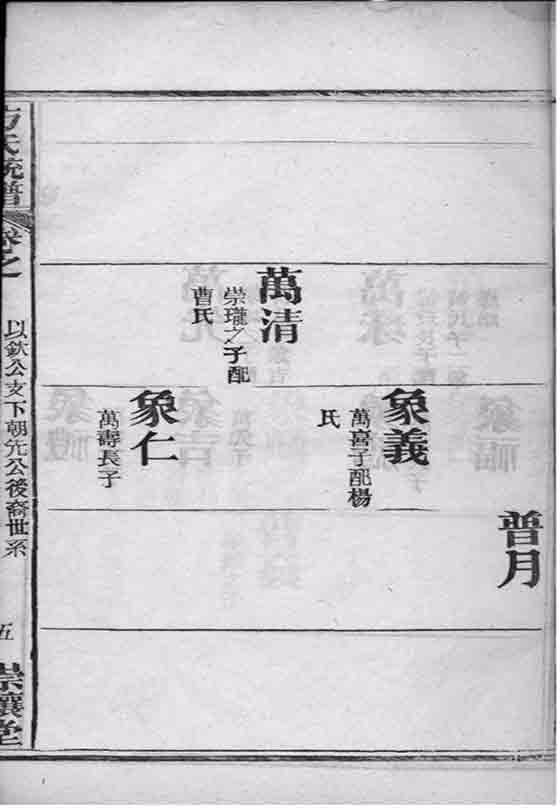 普月
象義
萬喜子配楊
氏
萬清
崇瓏之子配
曹氏
象仁
萬壽長子
方氏統譜
卷之
以欽公支下朝先公後裔世系
五
崇讓堂